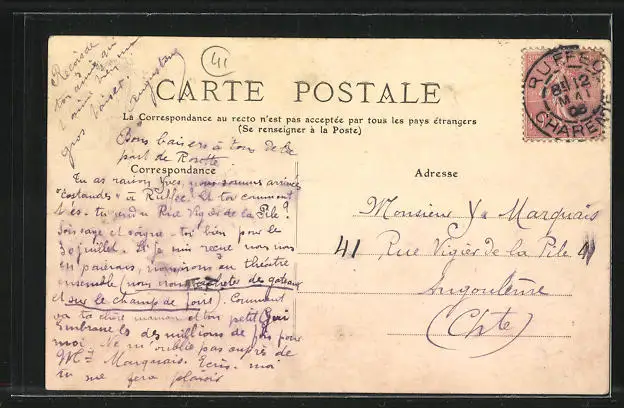 41
Reçois de
ton amie qui
t'aime bien un
gros baiser.
CARTE POSTALE
La Correspondance au recto n'est pas acceptée par tous les pays étrangers
(Se renseigner à la Poste)
Bons baisers à tous de la
part de Rosette
Correspondance
Adresse
Tu as raison Yves, nous sommes arrivés
à Ruffec. Et toi comment
es-tu rendu Rue Vigier de la Pile?
Sois sage et soigne-toi bien pour le
30 juillet. Si je suis reçue nous nous
en paierons, nous irons au théâtre
ensemble (nous nous achetons des gateaux
et sur le champ de foire). Comment
va ta chère maman et ton petit Guy
Embrasse les des millions de fois pour
moi. Ne m'oublie pas auprès de
Mr Marquais. Ecris-moi
tu me fera plaisir
Monsieur Y. Marquais
41 Rue Vigier de la Pile 41
Angoulême
(Chte)
RUFFEC
12
MAI
CHARENTE